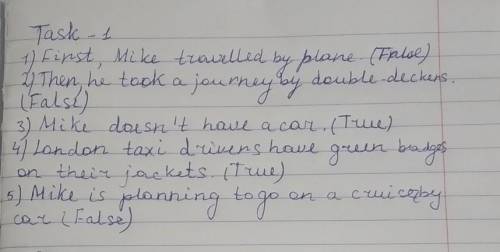 Task - 1
1) First, Mike travelled by plane. (False)
2) Then, he took a journey by double-deckers.
(False)
3) Mike doesn't have a car. (True)
4) London taxi drivers have green badges
on their jackets. (True)
5) Mike is planning to go on a cruice by
car (False)